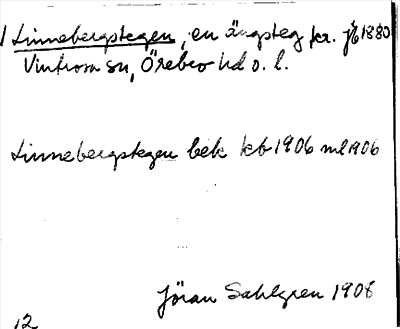 Linnebergstegen, en ängsteg kr. jb 1880
Vintrosa sn, Örebro hd o. l.
Linnebergstegen bek kb 1906 ml 1906
Jöran Sahlgren 1908
12